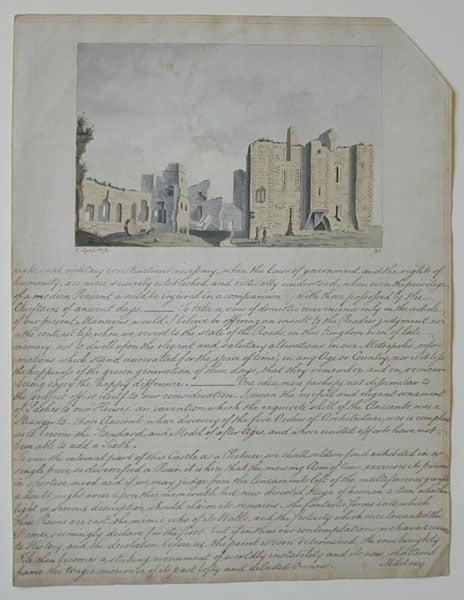 make such military constructions necessary, when the Laws of government and the right of
humanity, are more securely established and critically understood, when even the privilege
of a modern Peasant would be injured in a comparison with those professed by the
Chieftains of ancient days. To take a view of domestic convenience only in the article
of our present Mansions would I believe be offering an insult to the Readers judgment nor
is the contrast less when we revert to the state of the Roads in this Kingdom even of late
memory. Not to dwell upon the elegant and salutary alterations in our Metropolis, refor-
mations which stand unrivalled for the space of time, in any Age or Country, nor is it less
the happiness of the grown generation of these days, that they remember and in remem-
bering enjoy the happy difference. One idea more perhaps not dissimilar to
the subject offers itself to our consideration. I mean the usefull and elegant ornament
of Sashes to our Houses. an invention which the exquisite skill of the Ancients was a
Stranger to. those Ancients whose discovery of the five Orders of Architecture was so compleat
as to become the Standard and Model of after Ages, and whose united efforts have not
been able to add a Sixth.
To view the internal part of this Castle as a Picture, we shall seldom find exhibited in a
single piece so diversified a Ruin it is here that the mowing Arm of time, exercises its power
in sportive mood and if we may judge from the lineaments left of the multifarious
a doubt might arise upon this memorable but now deserted Stage of human action whether
light or serious description should claim its remains, the fantastic forms into which
these Ruins are cast, the mimic echo of its Walls, and the Jollity which once towards the
Domes, seemingly declare for the first. but if in these our contemplations we have recourse
to History, and the desolation before us, the point is soon determined, the once haughty
Pile then becomes a striking monument of worldly instability and its now shattered
frame the tragic mourner of its past lofty and deluded Owners.
Military.